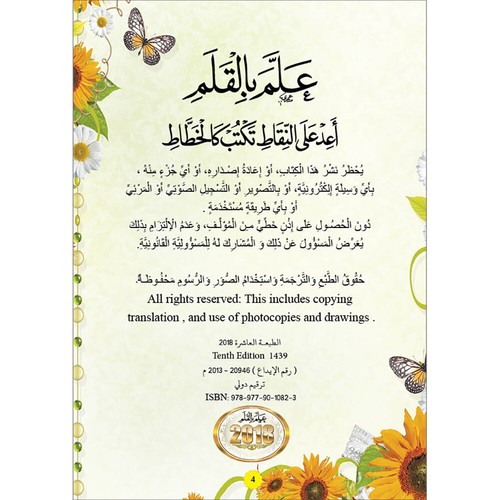 عَلَّمَ بِالْقَلَمِ
أَعِدْ عَلَى النِّقَاطِ تَكْتُبْ كَالْخَطَّاطِ
يُحْظَرُ نَشْرُ هَذَا الْكِتَابِ، أَوْ إِعَادَةُ إِصْدَارِهِ، أَوْ أَيِّ جُزْءٍ مِنْهُ ،
بِأَيِّ وَسِيلَةٍ إِلِكْتُرُونِيَّةٍ، أَوْ بِالتَّصْوِيرِ أَوْ التَّسْجِيلِ الصَّوْتِيِّ أَوْ الْمَرْئِيِّ
أَوْ بِأَيِّ طَرِيقَةٍ مُسْتَخْدَمَةٍ .
دُونَ الْحُصُولِ عَلَى إِذْنٍ خَطِّيٍّ مِنَ الْمُؤَلِّفِ، وَعَدَمُ الْاِلْتِزَامِ بِذَلِكَ
يُعَرِّضُ الْمَسْؤُولَ عَنْ ذَلِكَ وَ الْمُشَارِكَ لَهُ لِلْمَسْؤُولِيَّةِ الْقَانُونِيَّةِ.
حُقُوقُ الطَّبْعِ وَالتَّرْجَمَةِ وَاسْتِخْدَامُ الصُّوَرِ وَالرُّسُومِ مَحْفُوظَةٌ.
All rights reserved: This includes copying
translation , and use of photocopies and drawings .
الطبعة العاشرة 2018
Tenth Edition 1439
( رقم الإيداع ) 20946 - 2013 م
ترقيم دولي
ISBN: 978-977-90-1082-3
علم بالقلم
2018
4